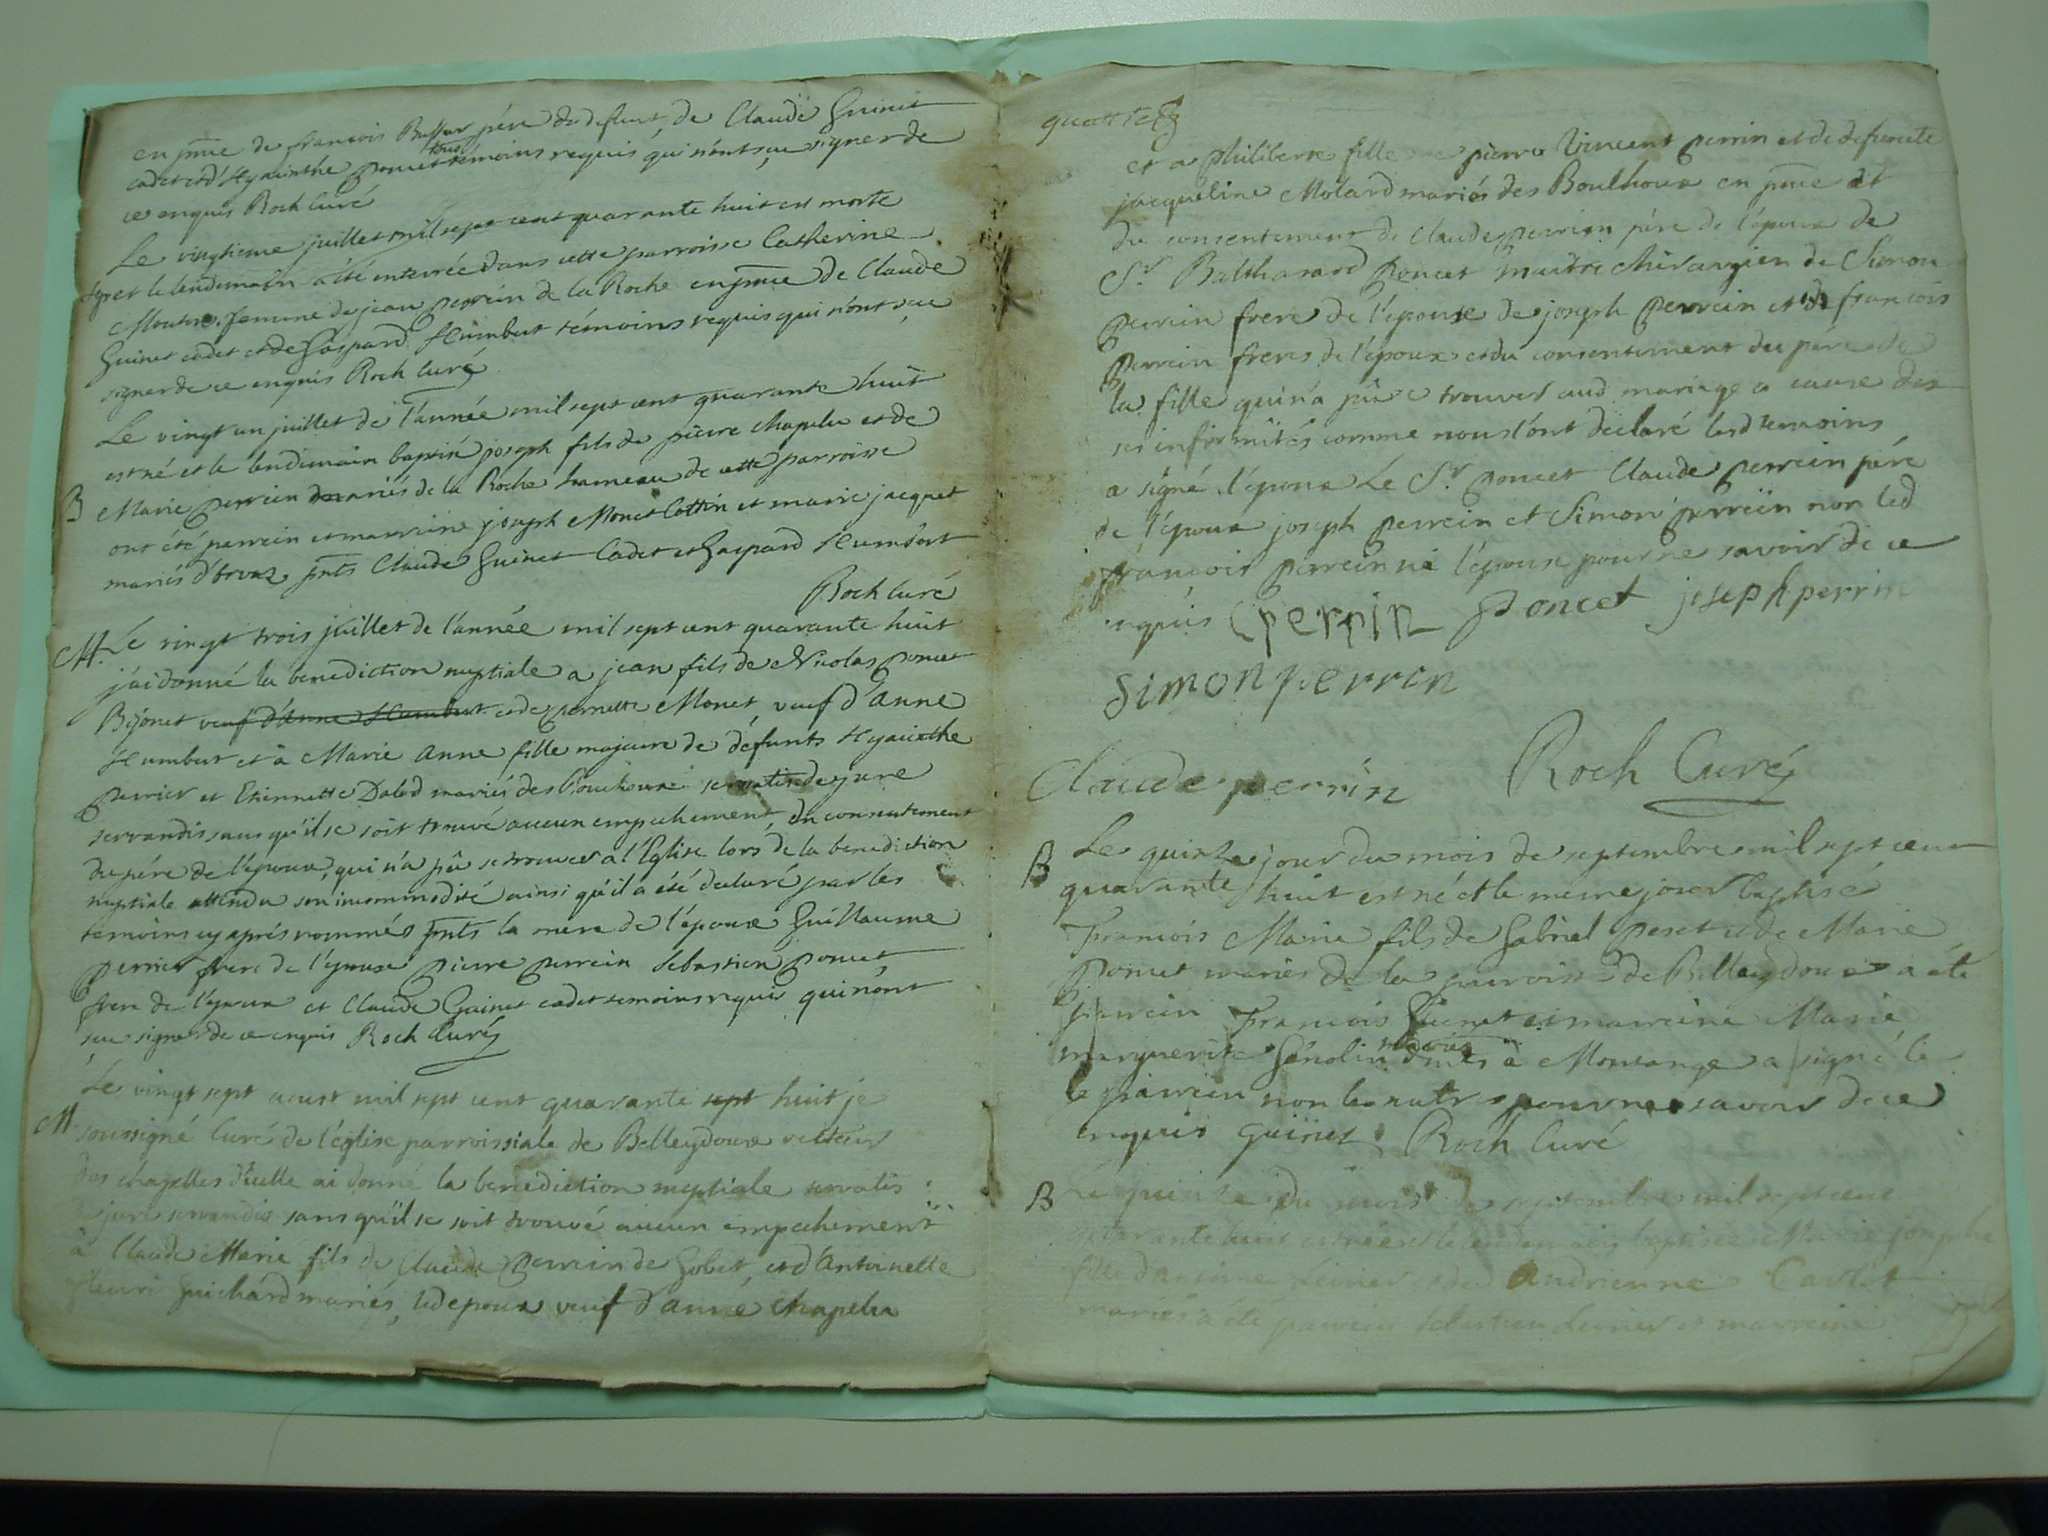 en pnce de francois Buffar père du defunt, de Claude Guinet
cadet et d'Hyacinthe poncet tous témoins requis qui n'ont sçu signer de
ce enquis Roch Curé
Le vingtieme juillet mil sept cent quarante huit est morte
et le lendemain a été enterrée dans cette parroisse Catherine
femme de jean perrein de la Roche en pnce de Claude
Guinet cadet et de Gaspard Humbert témoins requis qui n'ont sçu
signer de ce enquis Roch Curé
Le vingt un juillet de l'année mil sept cent quarante huit
est né et le lendemain baptisé joseph fils de pierre Chapelu et de
B Marie perrein mariés de la Roche hameau de cette parroisse
ont été parrein et marreine joseph Monet Cottin et marie jacquet
mariés d'orvaz pnts Claude Guinet Cadet et Gaspard Humbert
Roch Curé
M. Le vingt trois juillet de l'année mil sept cent quarante huit
j'ai donné la benediction nuptiale a jean fils de Nicolas poncet
Bijonet veuf d'Anne Humbert et de pernette Monet veuf d'Anne
Humbert et à Marie Anne fille majeure de défunts Hyacinthe
perrier et Etiennette Dalod mariés des servatis de jure
servandis sans qu'il se soit trouvé aucun empechement, du consentement
du pére de l'epoux, qui n'a pû se trouver a l'Eglise lors de la benediction
nuptiale attendu son incommodité ainsi qu'il a été declaré par les
temoins cy aprés nommés pnts la mere de l'epoux Guillaume
perrier frere de l'epouse pierre perrein Sebastien poncet
frere de l'epoux et Claude Guinet cadet temoins requis qui n'ont
sçu signer de ce enquis Roch Curé
Le vingt sept aoust mil sept cent quarante sept huit je
M soussigné Curé de l'église parroissiale de Belleydoux recteur
des chapelles d'icelle ai donné la benediction nuptiale servatis
de jure servandis sans qu'il se soit trouvé aucun empechement
à Claude Marie fils de Claude perrein de Gobet, et d'Antoinette
fleurie Guichard mariés, led epoux veuf d'Anne Chapelu
quatrie
et a philiberte fille de pierre Vincent perrin et de defuncte
jacqueline Molard mariés des Boulhoux en pnce et
du consentement de Claude perrein père de l'époux de
Sr Balthazard poncet maitre chirurgien de Simon
perrein frere de l'epouse de joseph perrein et de francois
perrein freres de l'époux et du consentement du pere de
la fille qui n'a pû se trouver aud mariage a cause de
ses infirmités comme nous l'ont declaré lesd temoins
a signé l'epoux Le Sr poncet Claude perrein pére
de l'époux joseph perrein et Simon perrein non led
francois perrein ni l'épouse pour ne savoir de ce
enquis C perrin Poncet joseph perrin
simon perrin
Claude perrin Roch Curé
B Le quinze jour du mois de septembre mil sept cent
quarante huit est né et le meme jour baptisé
François Marie fils de Gabriel peset et de Marie
Poncet mariés de la parroisse de Belleydoux a été
parrein François Guinet et marreine Marie
marguerite Génolin mariés à Montange a signé le
le parrein non les autres pour ne savoir de ce
enquis Guinet Roch Curé
B Le quinze du mois de septembre mil sept cent
quarante huit est née et le lendemain baptisée Marie josephe
fille d'antoine et de Andrienne
mariés a été parrein Sebastien et marreine